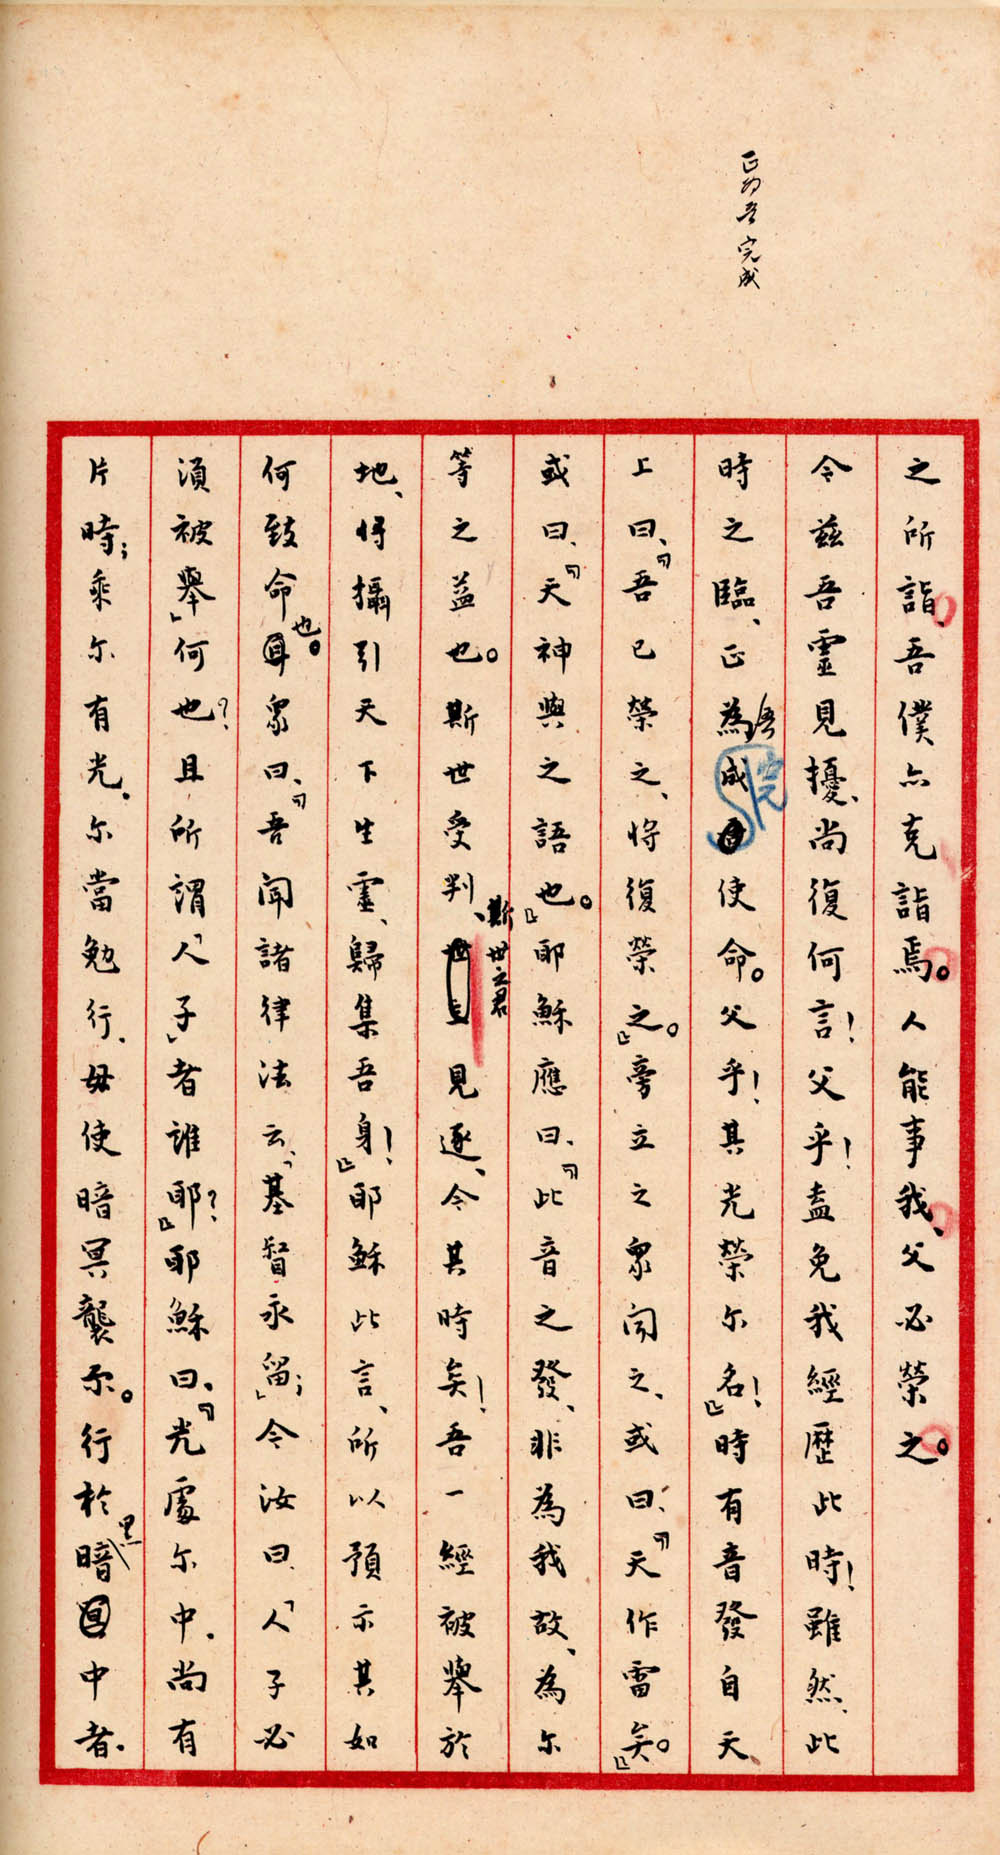 正為吾完成
之所詣、吾僕亦克詣焉。人能事我、父必榮之。
令茲吾靈見擾、尚復何言！父乎！盍免我經歷此時！雖然、此
時之臨、正為吾完成使命。父乎！其光榮尔名！』時有音發自天、
上曰、『吾已榮之、將復榮之。』旁立之眾聞之、或曰、『天作雷矣。』
或曰、『天神與之語也。』耶穌應曰、『此音之發、非為我故、為尔
等之益也。斯世受判、斯世之君見逐、今其時矣！吾一經被舉於
地、將攝引天下生靈、歸集吾身！』耶穌此言、所以預示其如
何致命也。眾曰、『吾聞諸律法云、「基督永留；」今汝曰、「人子必
須被舉」何也？且所謂「人子」者誰耶？』耶穌曰、『光處尔中、尚有
片時；乘尔有光、尔當勉行、毋使暗冥襲尔。行於黑暗中者、